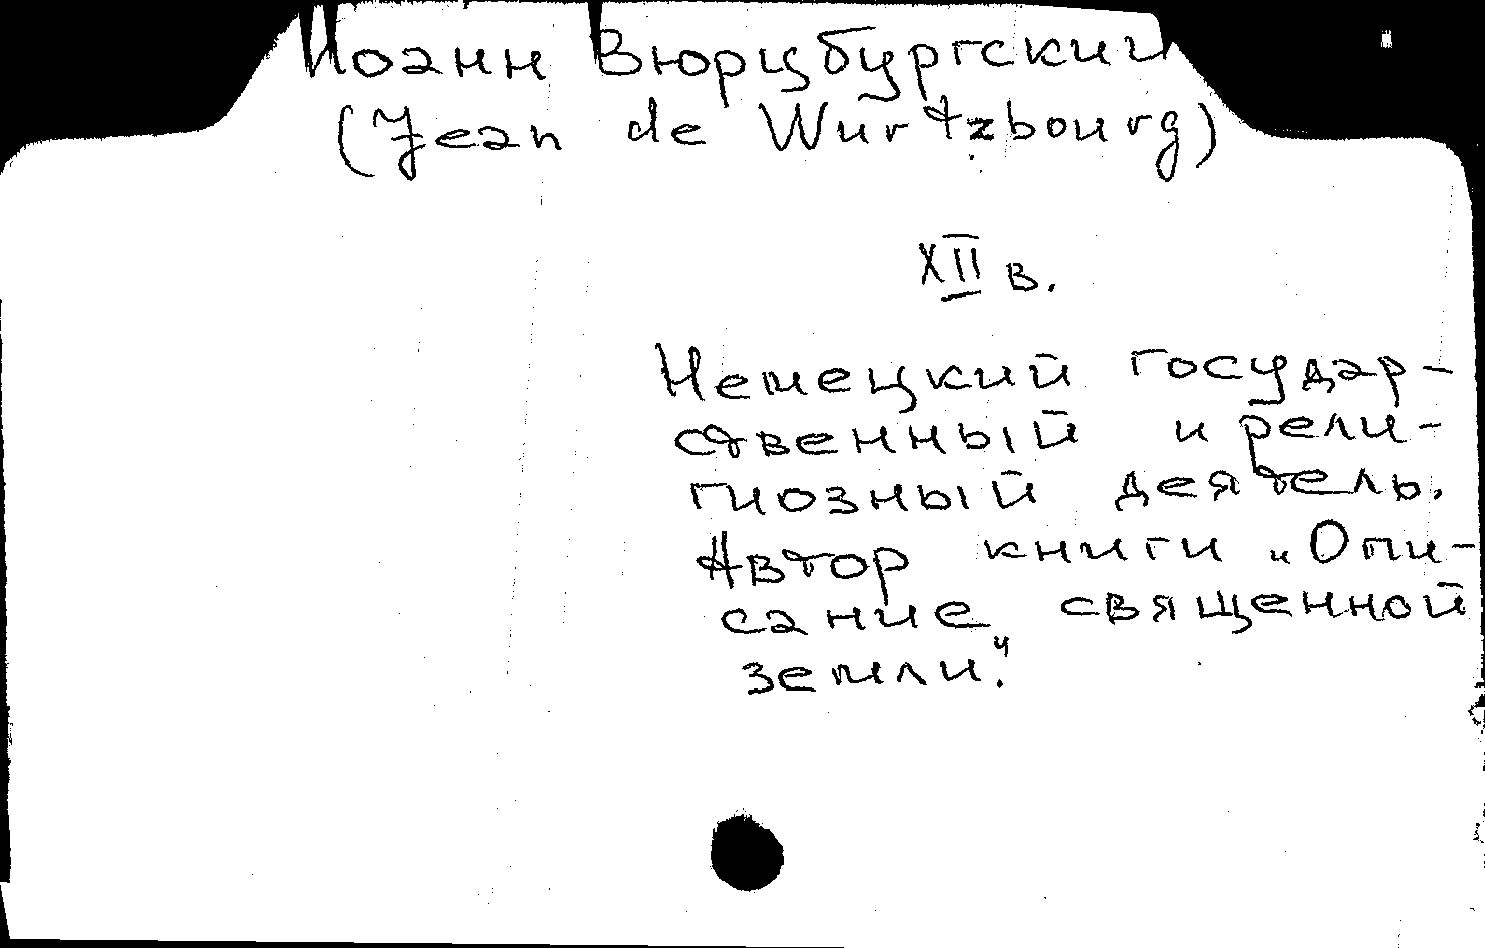 Иоанн Вюрцбургский
(Jean de Wurtzbourg)
XII в.
Немецкий государ-
ственный и рели-
гиозный деятель.
Автор книги „Опи-
сание священной
земли".